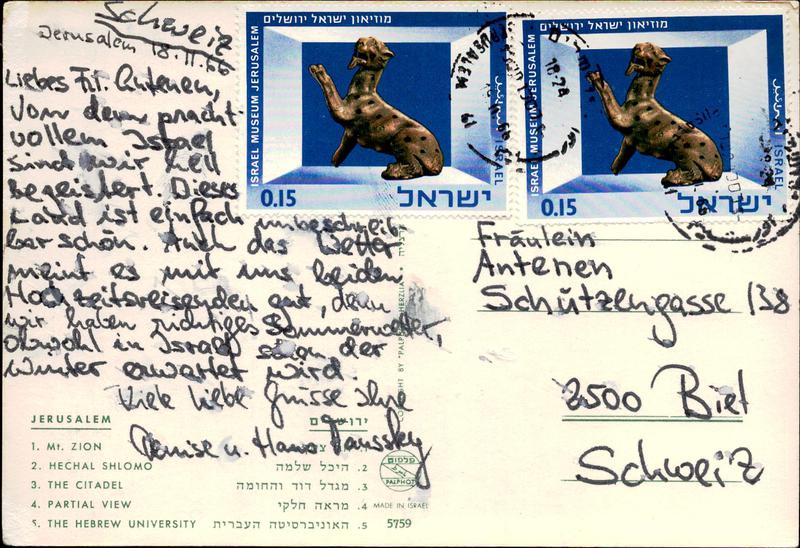 Schweiz
Jerusalem 18.11.66
Liebes Frl. Antenen,
Von dem pracht-
vollem Israel
sind wir hell
begeistert. Dieses
Land ist einfach unbeschreib-
bar schön. Auch das Wetter
meint es mit uns beiden
Hochzeitsreisenden gut, denn
wir haben richtiges Sommerwetter,
obwohl in Israel schon der
Winter erwartet wird.
Viele liebe Grüsse Ihre
Denise u. Hans
JERUSALEM ירושלים
1. Mt. ZION
2. HECHAL SHLOMO 2. היכל שלמה
3. THE CITADEL 3. מגדל דוד והחומה
4. PARTIAL VIEW 4. מראה חלקי
5. THE HEBREW UNIVERSITY 5. האוניברסיטה העברית
פלפוט
PALPHOT
MADE IN ISRAEL
5759
COPYRIGHT BY "PALPHOT" HERZLIA
מוזיאון ישראל ירושלים
ISRAEL MUSEUM JERUSALEM
ISRAEL
0.15 ישראל
מוזיאון ישראל ירושלים
ISRAEL MUSEUM JERUSALEM
ISRAEL
0.15 ישראל
JERUSALEM
18-24
Fräulein
Antenen
Schützengasse 138
2500 Biel
Schweiz